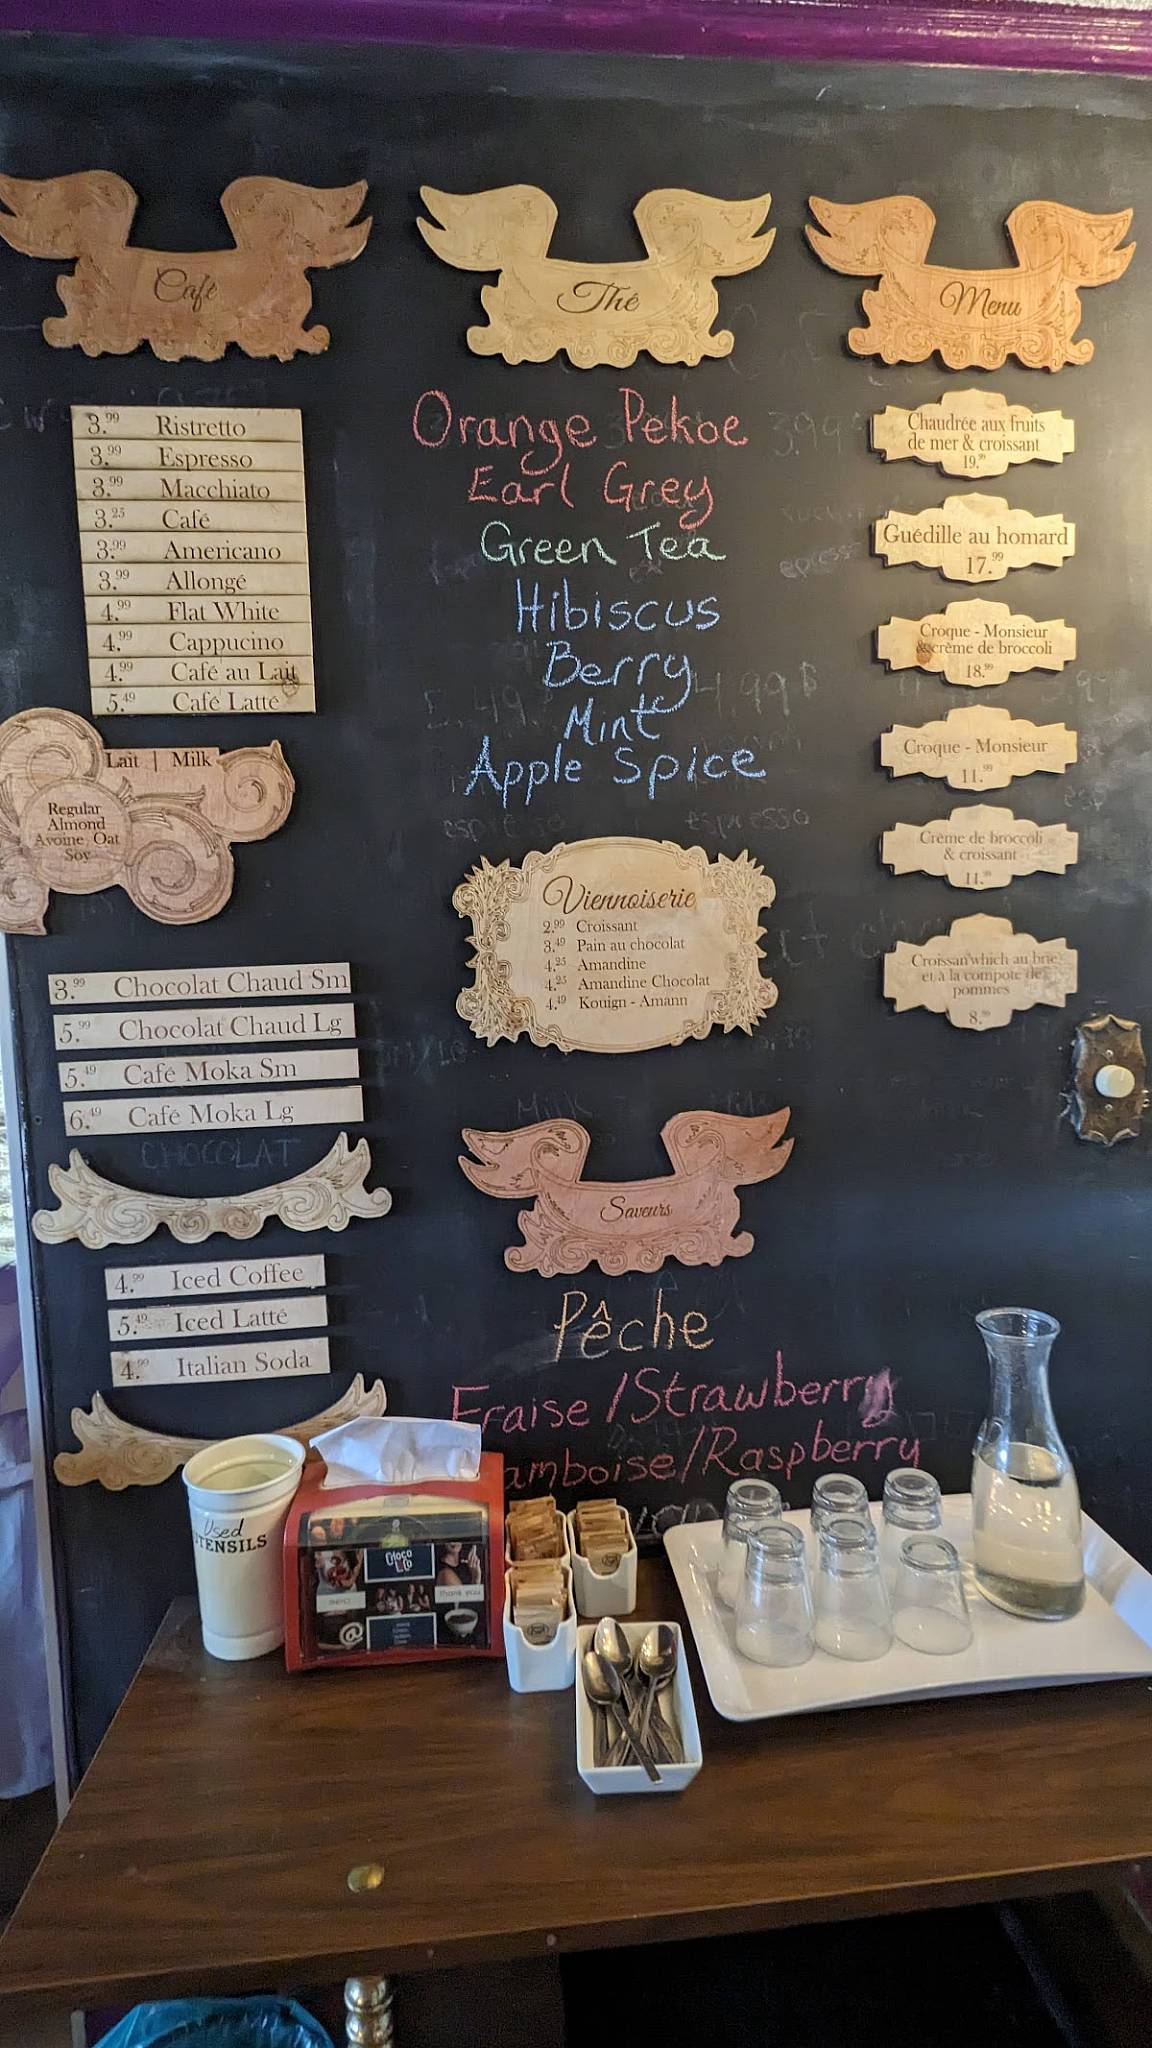 Café
3.99 Ristretto
3.99 Espresso
3.99 Macchiato
3.25 Café
3.99 Americano
3.99 Allongé
4.99 Flat White
4.99 Cappucino
4.99 Café au Lait
5.49 Café Latte
Lait | Milk
Regular
Almond
Avoine Oat
Soy
3.99 Chocolat Chaud Sm
5.99 Chocolat Chaud Lg
5.49 Café Moka Sm
6.49 Café Moka Lg
CHOCOLAT
4.99 Iced Coffee
5.49 Iced Latté
4.99 Italian Soda
Thé
Orange Pekoe
Earl Grey
Green Tea
Hibiscus
Berry
Mint
Apple Spice
espresso espresso
Viennoiserie
2.99 Croissant
3.49 Pain au chocolat
4.25 Amandine
4.25 Amandine Chocolat
4.49 Kouign - Amann
Saveurs
Pêche
Fraise / Strawberry
amboise/Raspberry
Menu
Chaudrée aux fruits
de mer & croissant
19.99
Guédille au homard
17.99
Croque - Monsieur
& crème de broccoli
18.99
Croque - Monsieur
11.99
Crème de broccoli
& croissant
11.99
Croissan'which au brie
et à la compote de
pommes
8.99
Used
UTENSILS
Choco
& Co
thank you
@